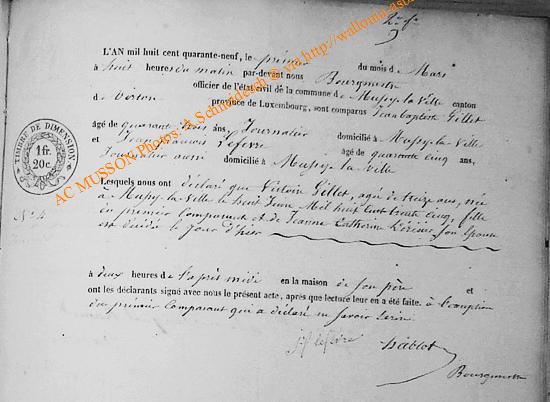 L'AN mil huit cent quarante-neuf, le premier du mois de Mars
à huit heures du matin par-devant nous Bourgmestre
officier de l'état civil de la commune de Mussy-la-Ville canton
de Virton province de Luxembourg, sont comparus Jean baptiste Gillet
âgé de quarante trois ans, Journalier domicilié à Mussy-la-ville
et Jean françois Lefevre âgé de quarante cinq ans,
Journalier aussi domicilié à Mussy-la ville
Lesquels nous ont déclaré que Victoire Gillet, agée de treize ans, née
à Mussy-la-Ville le huit Juin Mil huit Cent trente Cinq, fille
du premier Comparant et de Jeanne Catherine son Epouse
est décédée le Jour d'hier
à deux heures de l'après midi en la maison de son père et
ont les déclarants signé avec nous le présent acte, après que lecture leur en a été faite. à l'exception
du premier Comparant qui a déclaré ne savoir
Jf lefevre
Bourgmestre
TIMBRE DE DIMENSION
1 fr.
20 c.
N° 4
AC MUSSON Photos: A. Schmidesch © via http://wallonia-asbl